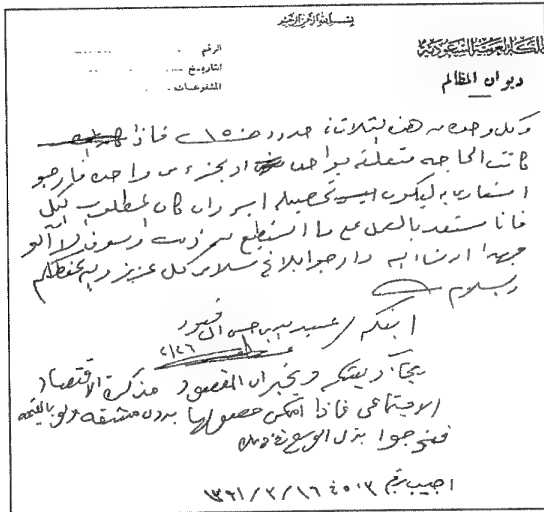 بسم الله الرحمن الرحيم
المملكة العربية السعودية
ديوان المظالم
الرقم
التاريخ
المشفوعات
وكل وحده من هذه الثلاثة حدود فاذا
كانت الحاجه متعلقه بواحد او بجزء من واحده فارجو
اشعاري به ليكون تحصيله ايسر وان كان المطلوب الكل
فانا مستعد بالعمل على ما استطيع من ذلك وسوف لا آلو
جهدا ان شاء الله وارجو ابلاغ سلامي كل عزيز والله يحفظكم
والسلام
ابنكم عبد الله بن حسن ال قعود
٢/٢٦
يجاب ويشكر ويخبر ان المقصود مذكرة الاقتصاد
الاجتماعي فاذا امكن حصولها بدون مشقه ولو بالقيمه
فنرجوا بذل الوسع في ذلك
اجيب برقم ٤٥٠٣ ١٦/ ٣/ ١٣٩١